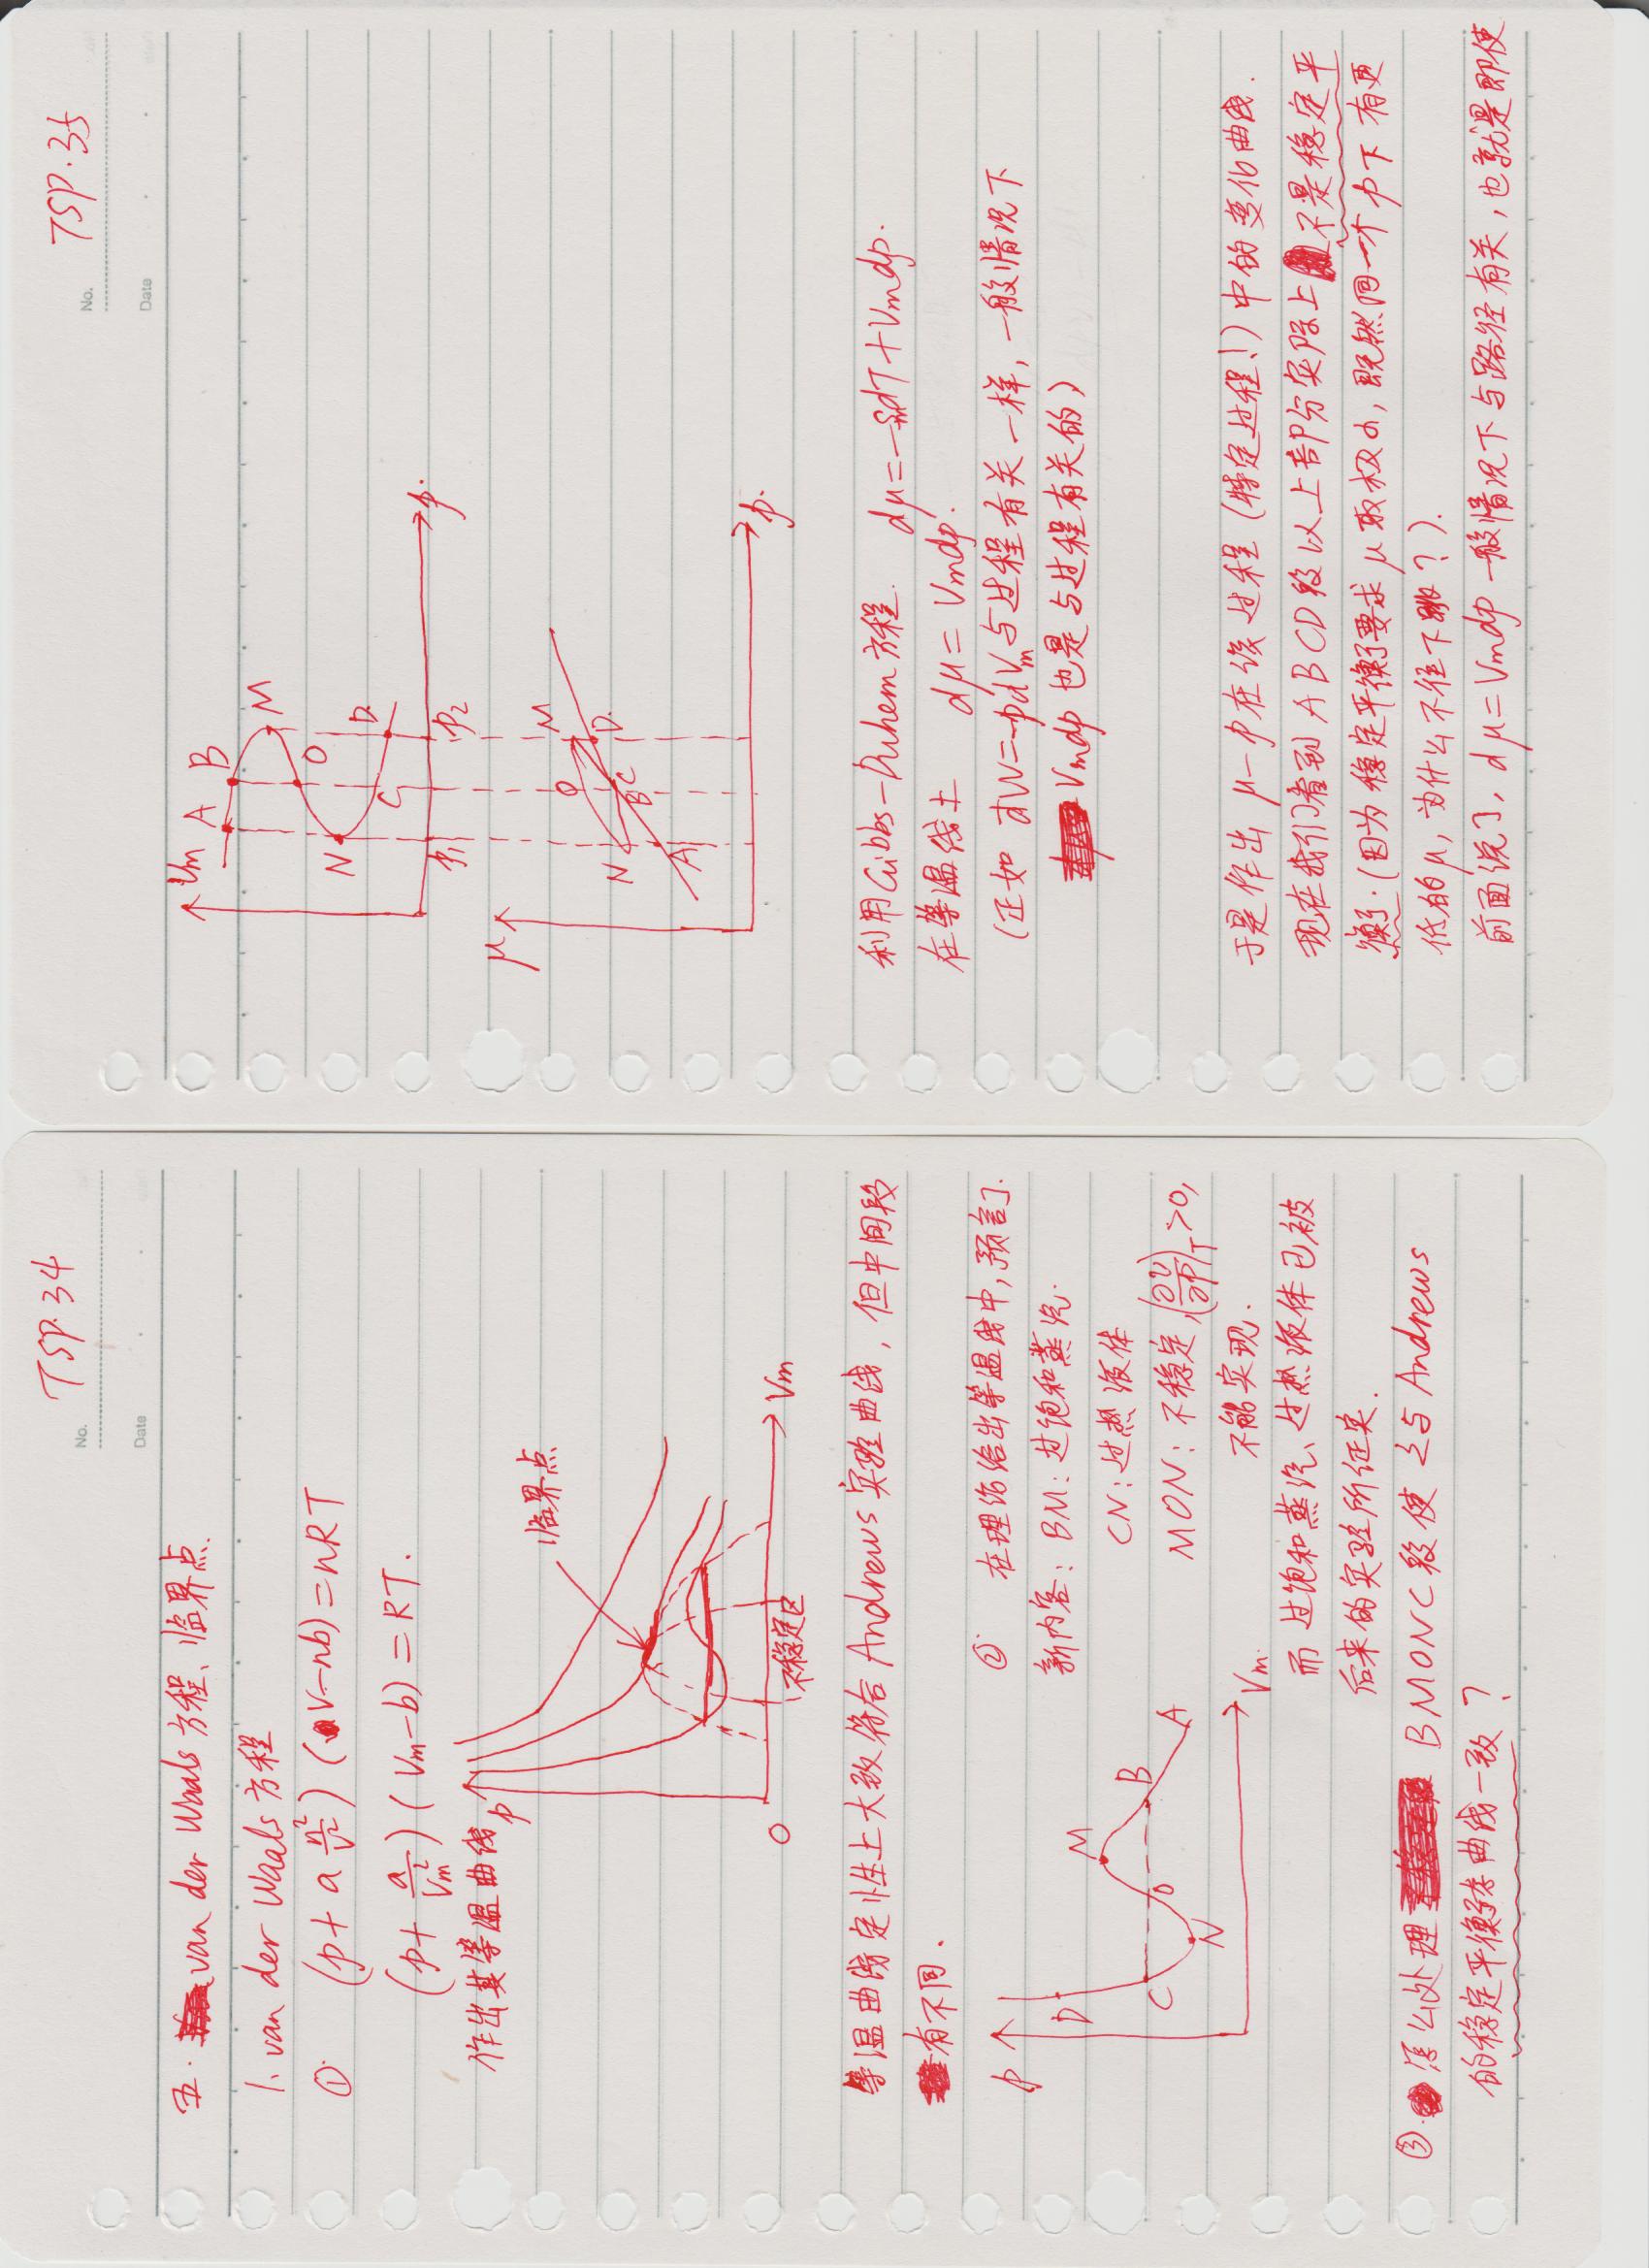 TSP.34
No.
Date
五. van der Waals 方程、临界点.
1. van der Waals 方程
① (p + a n²/V²) (V-nb) = nRT
(p + a/Vm²) (Vm-b) = RT.
作出其等温曲线
p
临界点
O
Vm
不稳定区
等温曲线定性上大致符合 Andrews 实验曲线, 但中间段
有不同.
② 在理论给出等温线中, 预言了
新内容: BM: 过饱和蒸汽.
CN: 过热液体
MON: 不稳定, (∂v/∂p)_T >0,
不能实现.
p
D
M
C
O
B
A
N
Vm.
而过饱和蒸汽、过热液体已被
后来的实验所证实.
③. 怎么处理 BMONC 段使之与 Andrews
的稳定平衡态曲线一致?
TSP.35
No.
Date
Vm
A
B
M
O
N
D.
C
p1
p2
p.
μ
M
O
N
D.
B
C
A
p.
利用 Gibbs-Duhem 方程. dμ = -SmdT + Vmdp.
在等温线上 dμ = Vmdp.
(正如 đW=-pdVm 与过程有关一样, 一般情况下
Vmdp 也是与过程有关的)
于是作出 μ-p 在该过程 (特定过程!) 中的变化曲线.
现在我们看到 ABCD 段以上部分实际上不是稳定平
衡了. (因为稳定平衡要求 μ 取极小, 既然同一个 p 下有更
低的 μ, 为什么不往下跳?).
前面说了, dμ = Vmdp 一般情况下与路径有关, 也就是即使